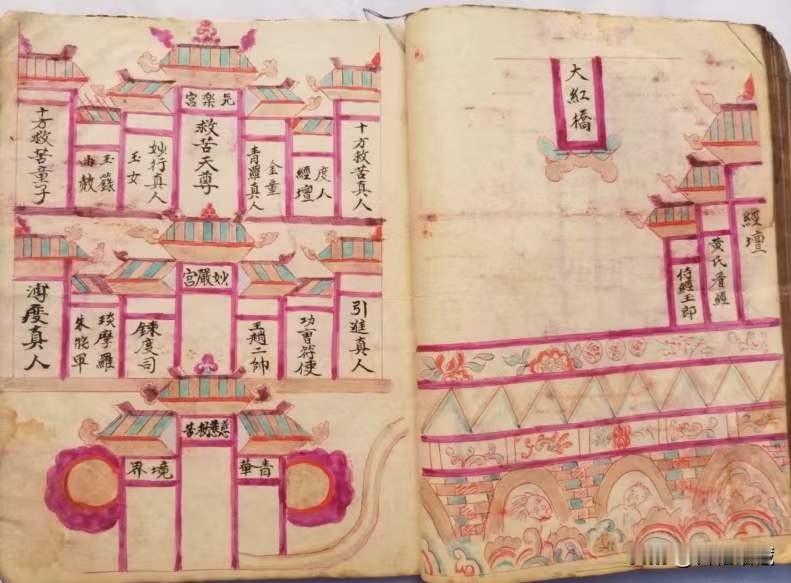 大紅橋
經壇
黃氏看經
侍經王郎
樂宮
十方救苦真人
度人
經壇
金童
青羅真人
救苦天尊
妙行真人
玉女
玉籙
十方救苦童子
妙嚴宮
引進真人
功曹符使
王趙二帥
鍊度司
琰摩羅
溥度真人
青華
境界